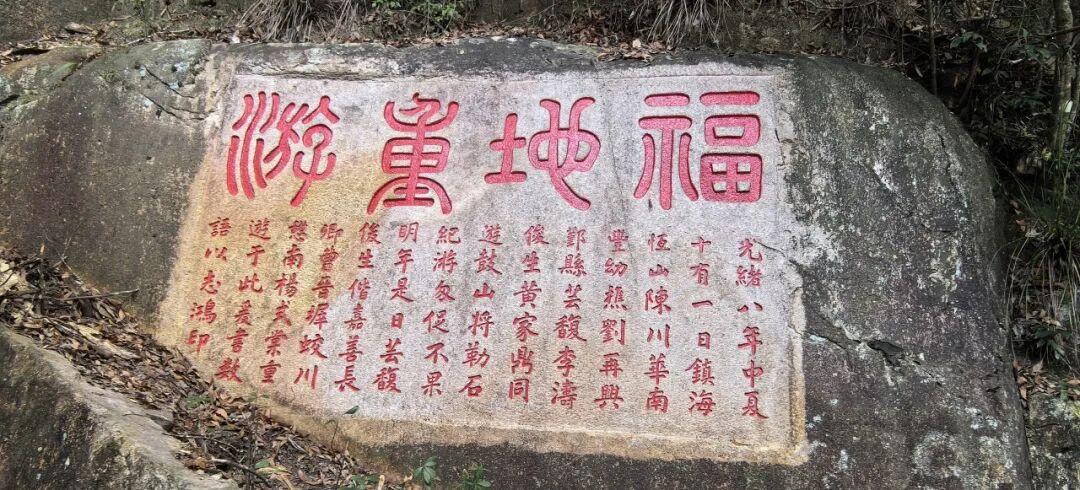 福地重游
光緒八年中夏
十有一日鎮海
恆山陳川華南
豐幼樵劉再興
鄞縣芸馥李濤
俊生黃家鼎同
遊鼓山將勒石
紀游匆促不果
明年是日芸馥
俊生偕嘉善長
卿曹晉墀蛟川
南楊式棠重
遊于此爰書數
語以志鴻印